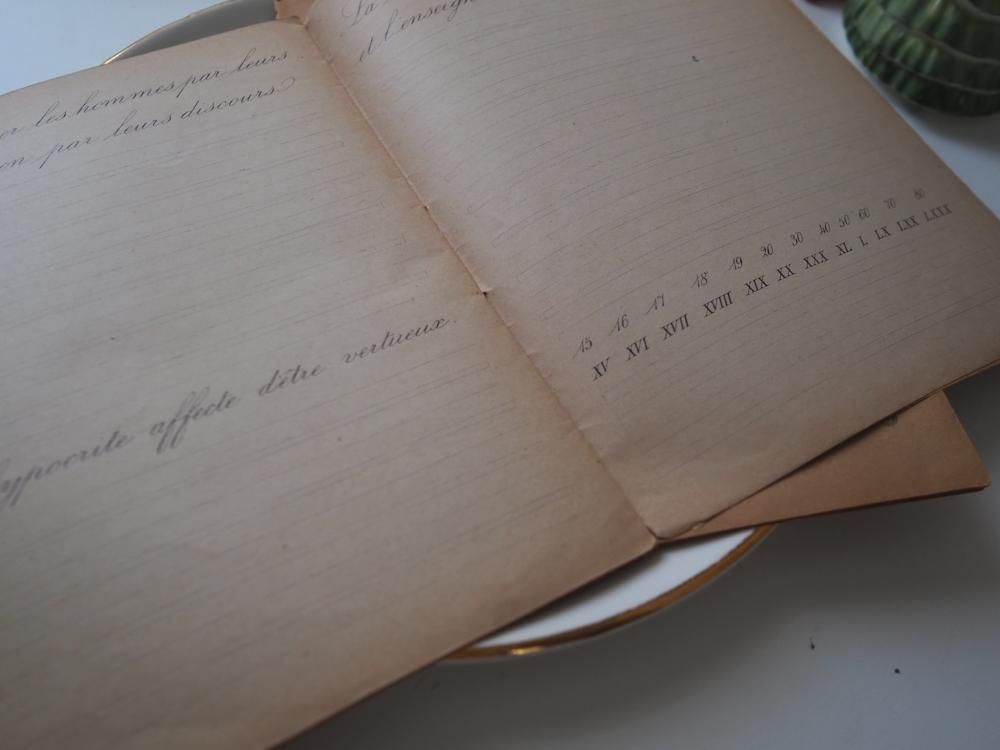 er les hommes par leurs
on par leurs discours.
hypocrite affecte d'être vertueux.
La
et l'enseign
15 16 17 18 19 20 30 40 50 60 70 80
XV XVI XVII XVIII XIX XX XXX XL L LX LXX LXXX